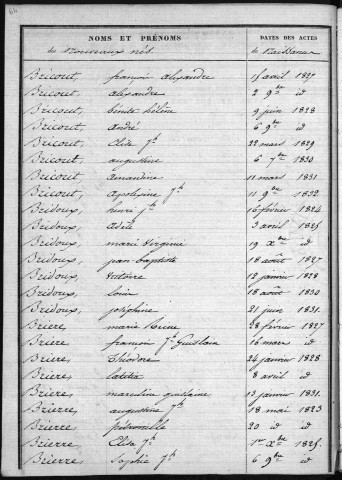 64
NOMS ET PRÉNOMS DATES DES ACTES
des Nouveaux nés. de Naissance
Bricout, françois alexandre 15 avril 1827
Bricout, alexandre 2 9bre id
Bricout, bénite hélène 9 juin 1828
Bricout, andré 6 9bre id
Bricout, Elisa Jh 22 mars 1829
Bricout, augustine 6 7bre 1830
Bricout, amandine 11 mars 1831
Bricout, apolline Jh 11 9bre 1832
Bridoux, henri Jh 16 février 1824
Bridoux, adèle 3 avril 1825
Bridoux, marie Virginie 19 Xbre id
Bridoux, jean baptiste 18 août 1827
Bridoux, Victoire 12 janvier 1828
Bridoux, louis 18 août 1830
Bridoux, joséphine 21 juin 1831
Brière, marie 28 février 1827
Brière, françois Jh Guislain 16 mars id
Brière, théodore 24 janvier 1828
Brière, laetitia 8 avril id
Brière, marceline guislaine 13 janvier 1831
Brierre, augustine Jh 18 mai 1823
Brierre, pétronille 20 id id
Brierre, Elisa Jh 1er Xbre 1825
Brierre, Sophie Jh 6 9bre id